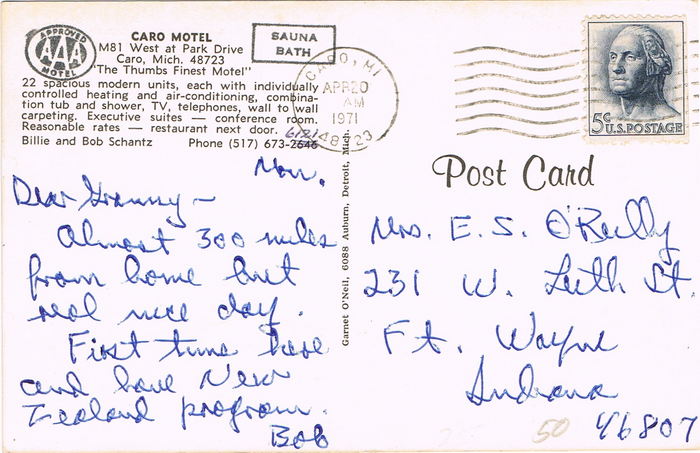 APPROVED
AAA
MOTEL
CARO MOTEL
M81 West at Park Drive
Caro, Mich. 48723
"The Thumbs Finest Motel"
22 spacious modern units, each with individually
controlled heating and air-conditioning, combina-
tion tub and shower, TV, telephones, wall to wall
carpeting. Executive suites — conference room.
Reasonable rates — restaurant next door.
Billie and Bob Schantz Phone (517) 673-2646
6121
SAUNA
BATH
CARO, MI
APR 20
AM
1971
48723
5¢ U.S. POSTAGE
Post Card
Garnet O'Neil, 6088 Auburn, Detroit, Mich.
Mon.
Dear Granny –
Almost 300 miles
from home but
real nice day.
First time here
and have New
Zealand program.
Bob
Mrs. E. S. O'Reilly
231 W. Leith St.
Ft. Wayne
Indiana
46807
50